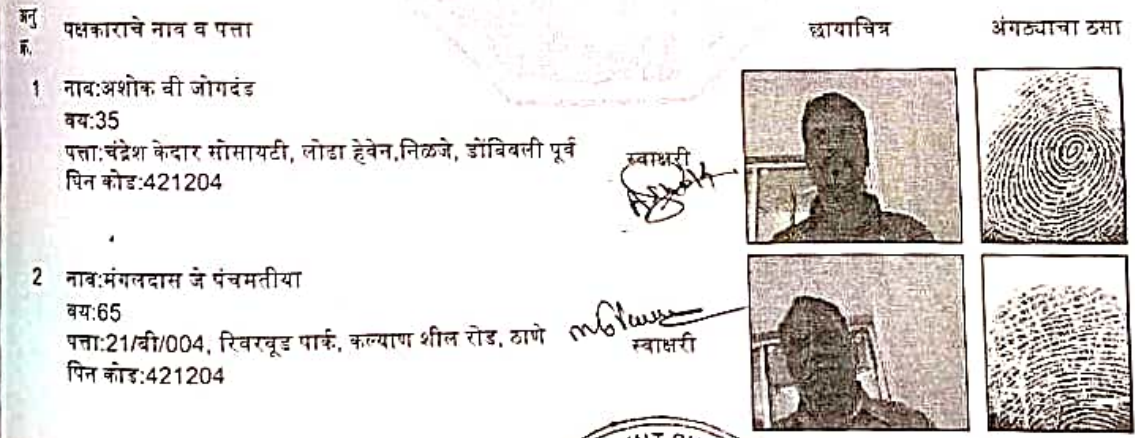 अनु क्र. पक्षकाराचे नाव व पत्ता छायाचित्र अंगठ्याचा ठसा
1 नाव:अशोक बी जोगदंड
वय:35
पत्ता:चंद्रेश केदार सोसायटी, लोडा हेवेन,निळजे, डोंबिवली पूर्व
पिन कोड:421204
स्वाक्षरी
2 नाव:मंगलदास जे पंचमतीया
वय:65
पत्ता:21/बी/004, रिवरवूड पार्क, कल्याण शील रोड, ठाणे
पिन कोड:421204
स्वाक्षरी